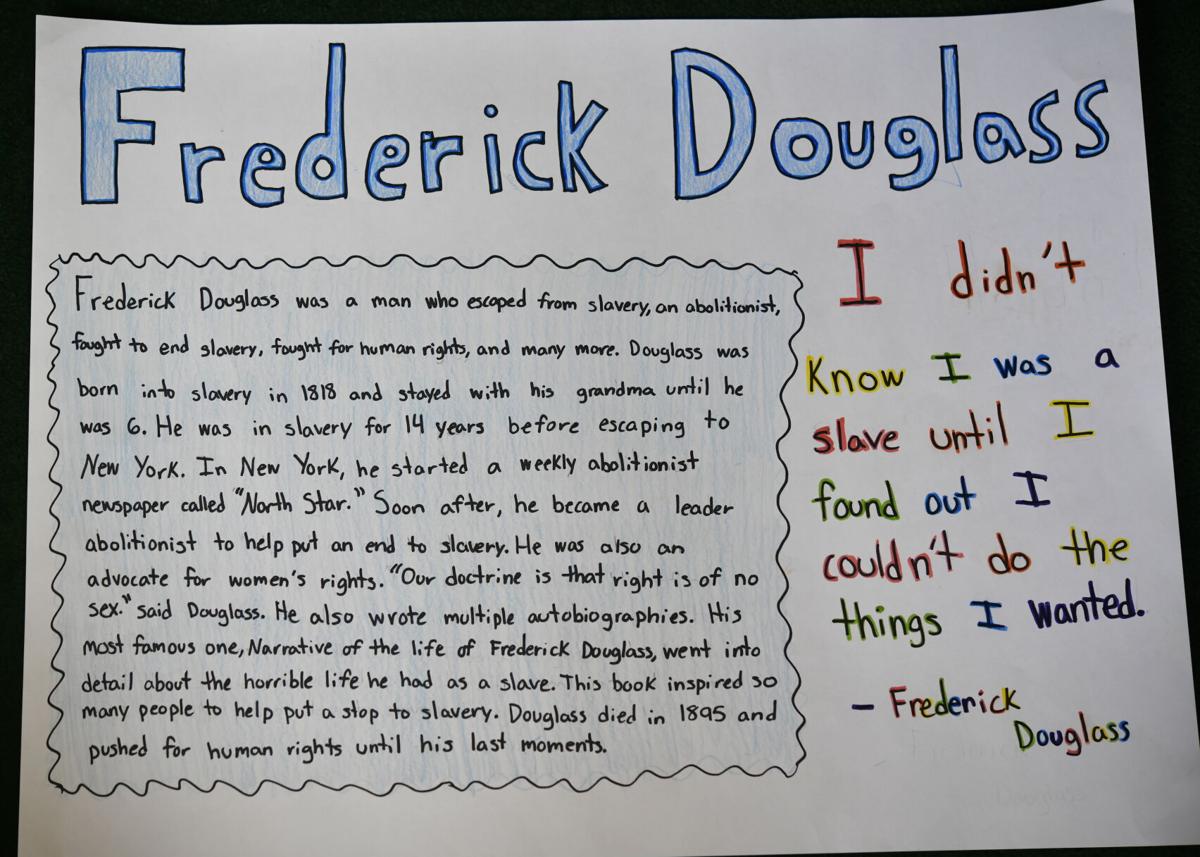 Frederick Douglass
Frederick Douglass was a man who escaped from slavery, an abolitionist,
fought to end slavery, fought for human rights, and many more. Douglass was
born into slavery in 1818 and stayed with his grandma until he
was 6. He was in slavery for 14 years before escaping to
New York. In New York, he started a weekly abolitionist
newspaper called "North Star." Soon after, he became a leader
abolitionist to help put an end to slavery. He was also an
advocate for women's rights. "Our doctrine is that right is of no
sex." said Douglass. He also wrote multiple autobiographies. His
most famous one, Narrative of the life of Frederick Douglass, went into
detail about the horrible life he had as a slave. This book inspired so
many people to help put a stop to slavery. Douglass died in 1895 and
pushed for human rights until his last moments.
I didn't
Know I was a
slave until I
found out I
couldn't do the
things I wanted.
- Frederick
Douglass